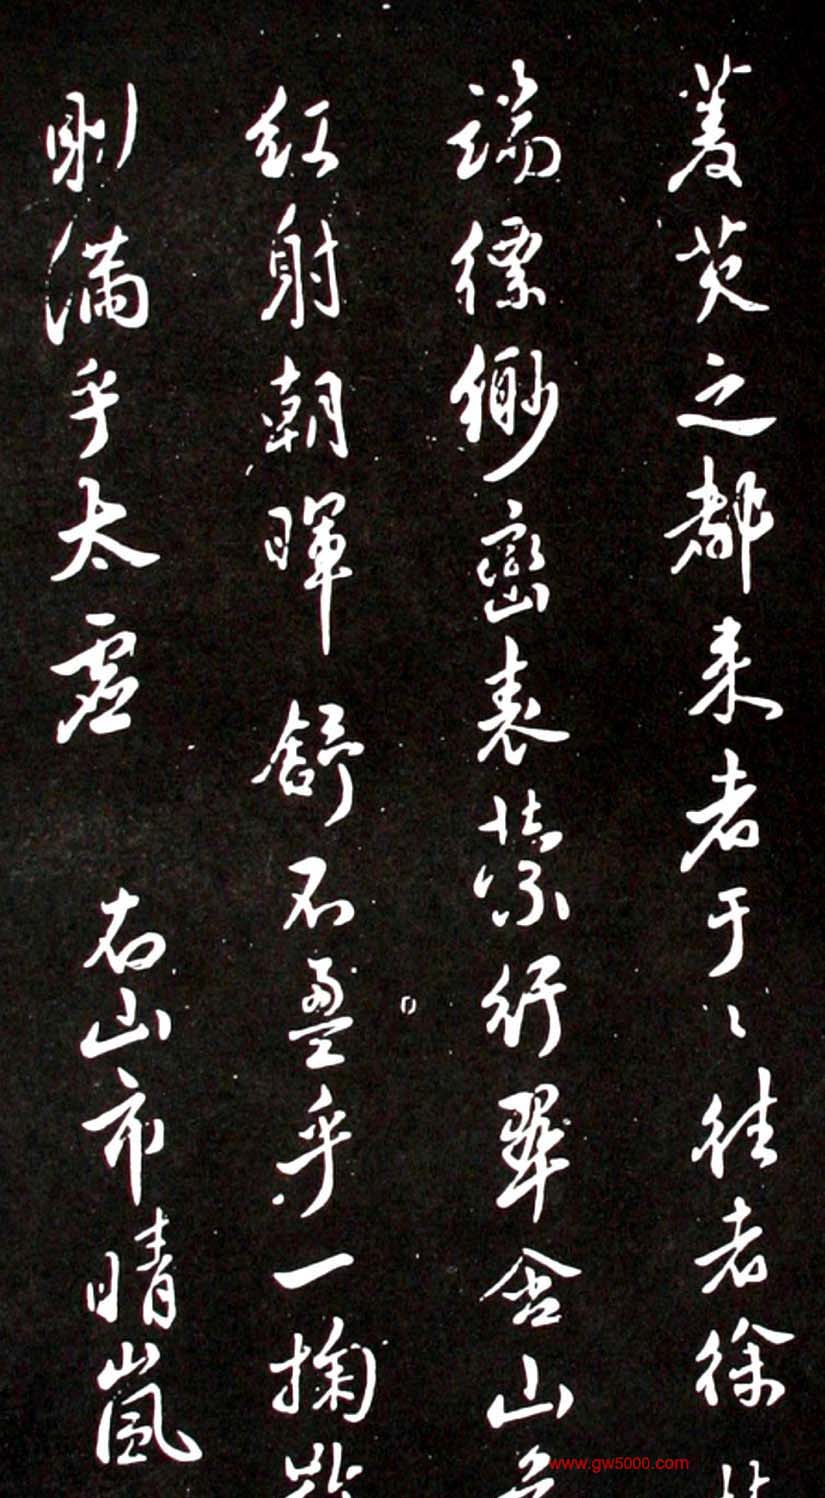 菱芡之都来者于〻往者徐
端缥缈峦表萦行翠含山
红射朝晖舒不盈乎一掬
则满乎太虚 右山市晴岚
www.gw5000.com